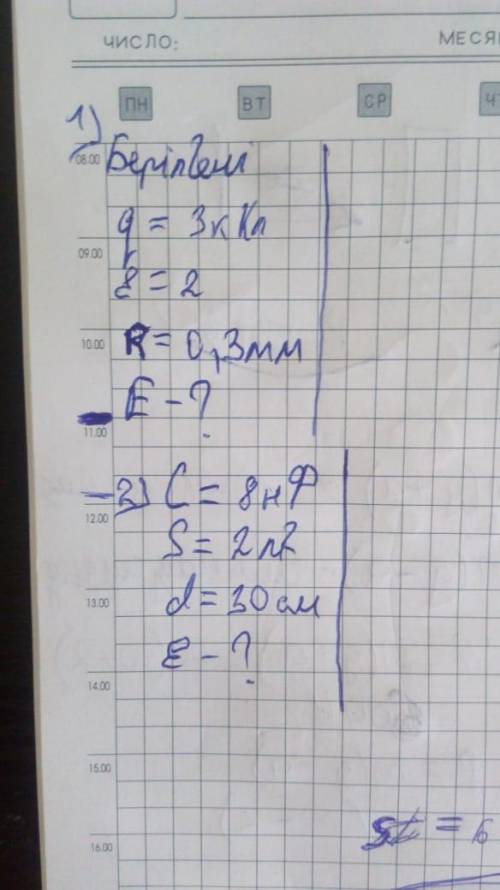 ЧИСЛО:
МЕСЯ
ПН ВТ СР ЧТ
1)
08.00 Берілгені
q = 3кКл
09.00
ε = 2
10.00 R = 0,3мм
E - ?
11.00
2) C = 8нФ
12.00
S = 2м²
13.00 d = 30см
ε - ?
14.00
15.00
= 6
16.00